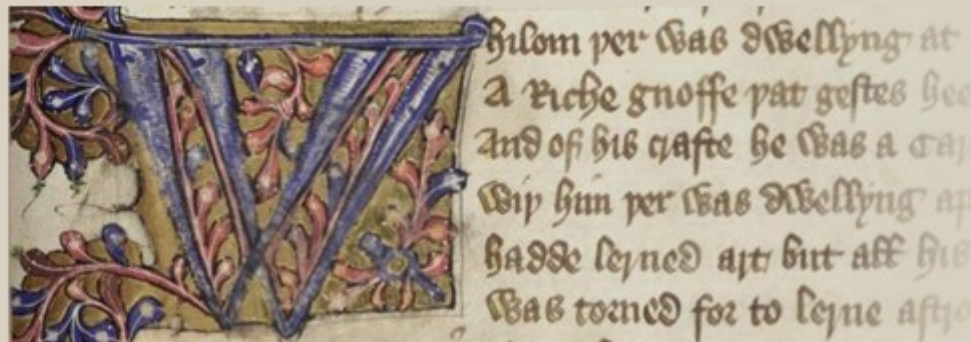 Whilom þer was dwellyng at
A Riche gnoffe þat gestes hee
And of his crafte he was a Car
wiþ him þer was dwellyng a
hadde lerned art but all his
was torned for to lerne astro